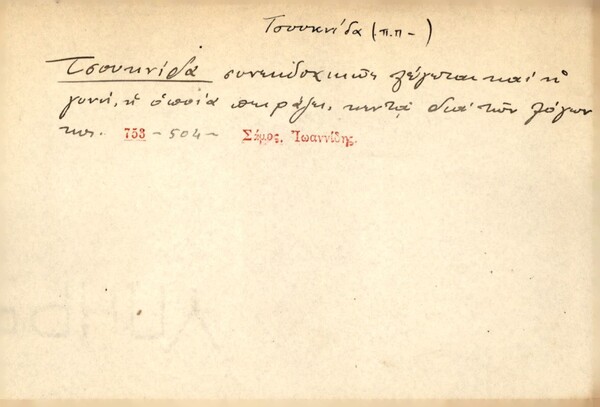 Τσουκνίδα (π.π-)
Τσουκνίδα συνεκδοχικῶς λέγεται καὶ ἡ
γυνή, ἡ ὁποία πειράζει, κεντᾷ διὰ τῶν λόγων
της. 753 - 504 - Σάμος, Ἰωαννίδης.